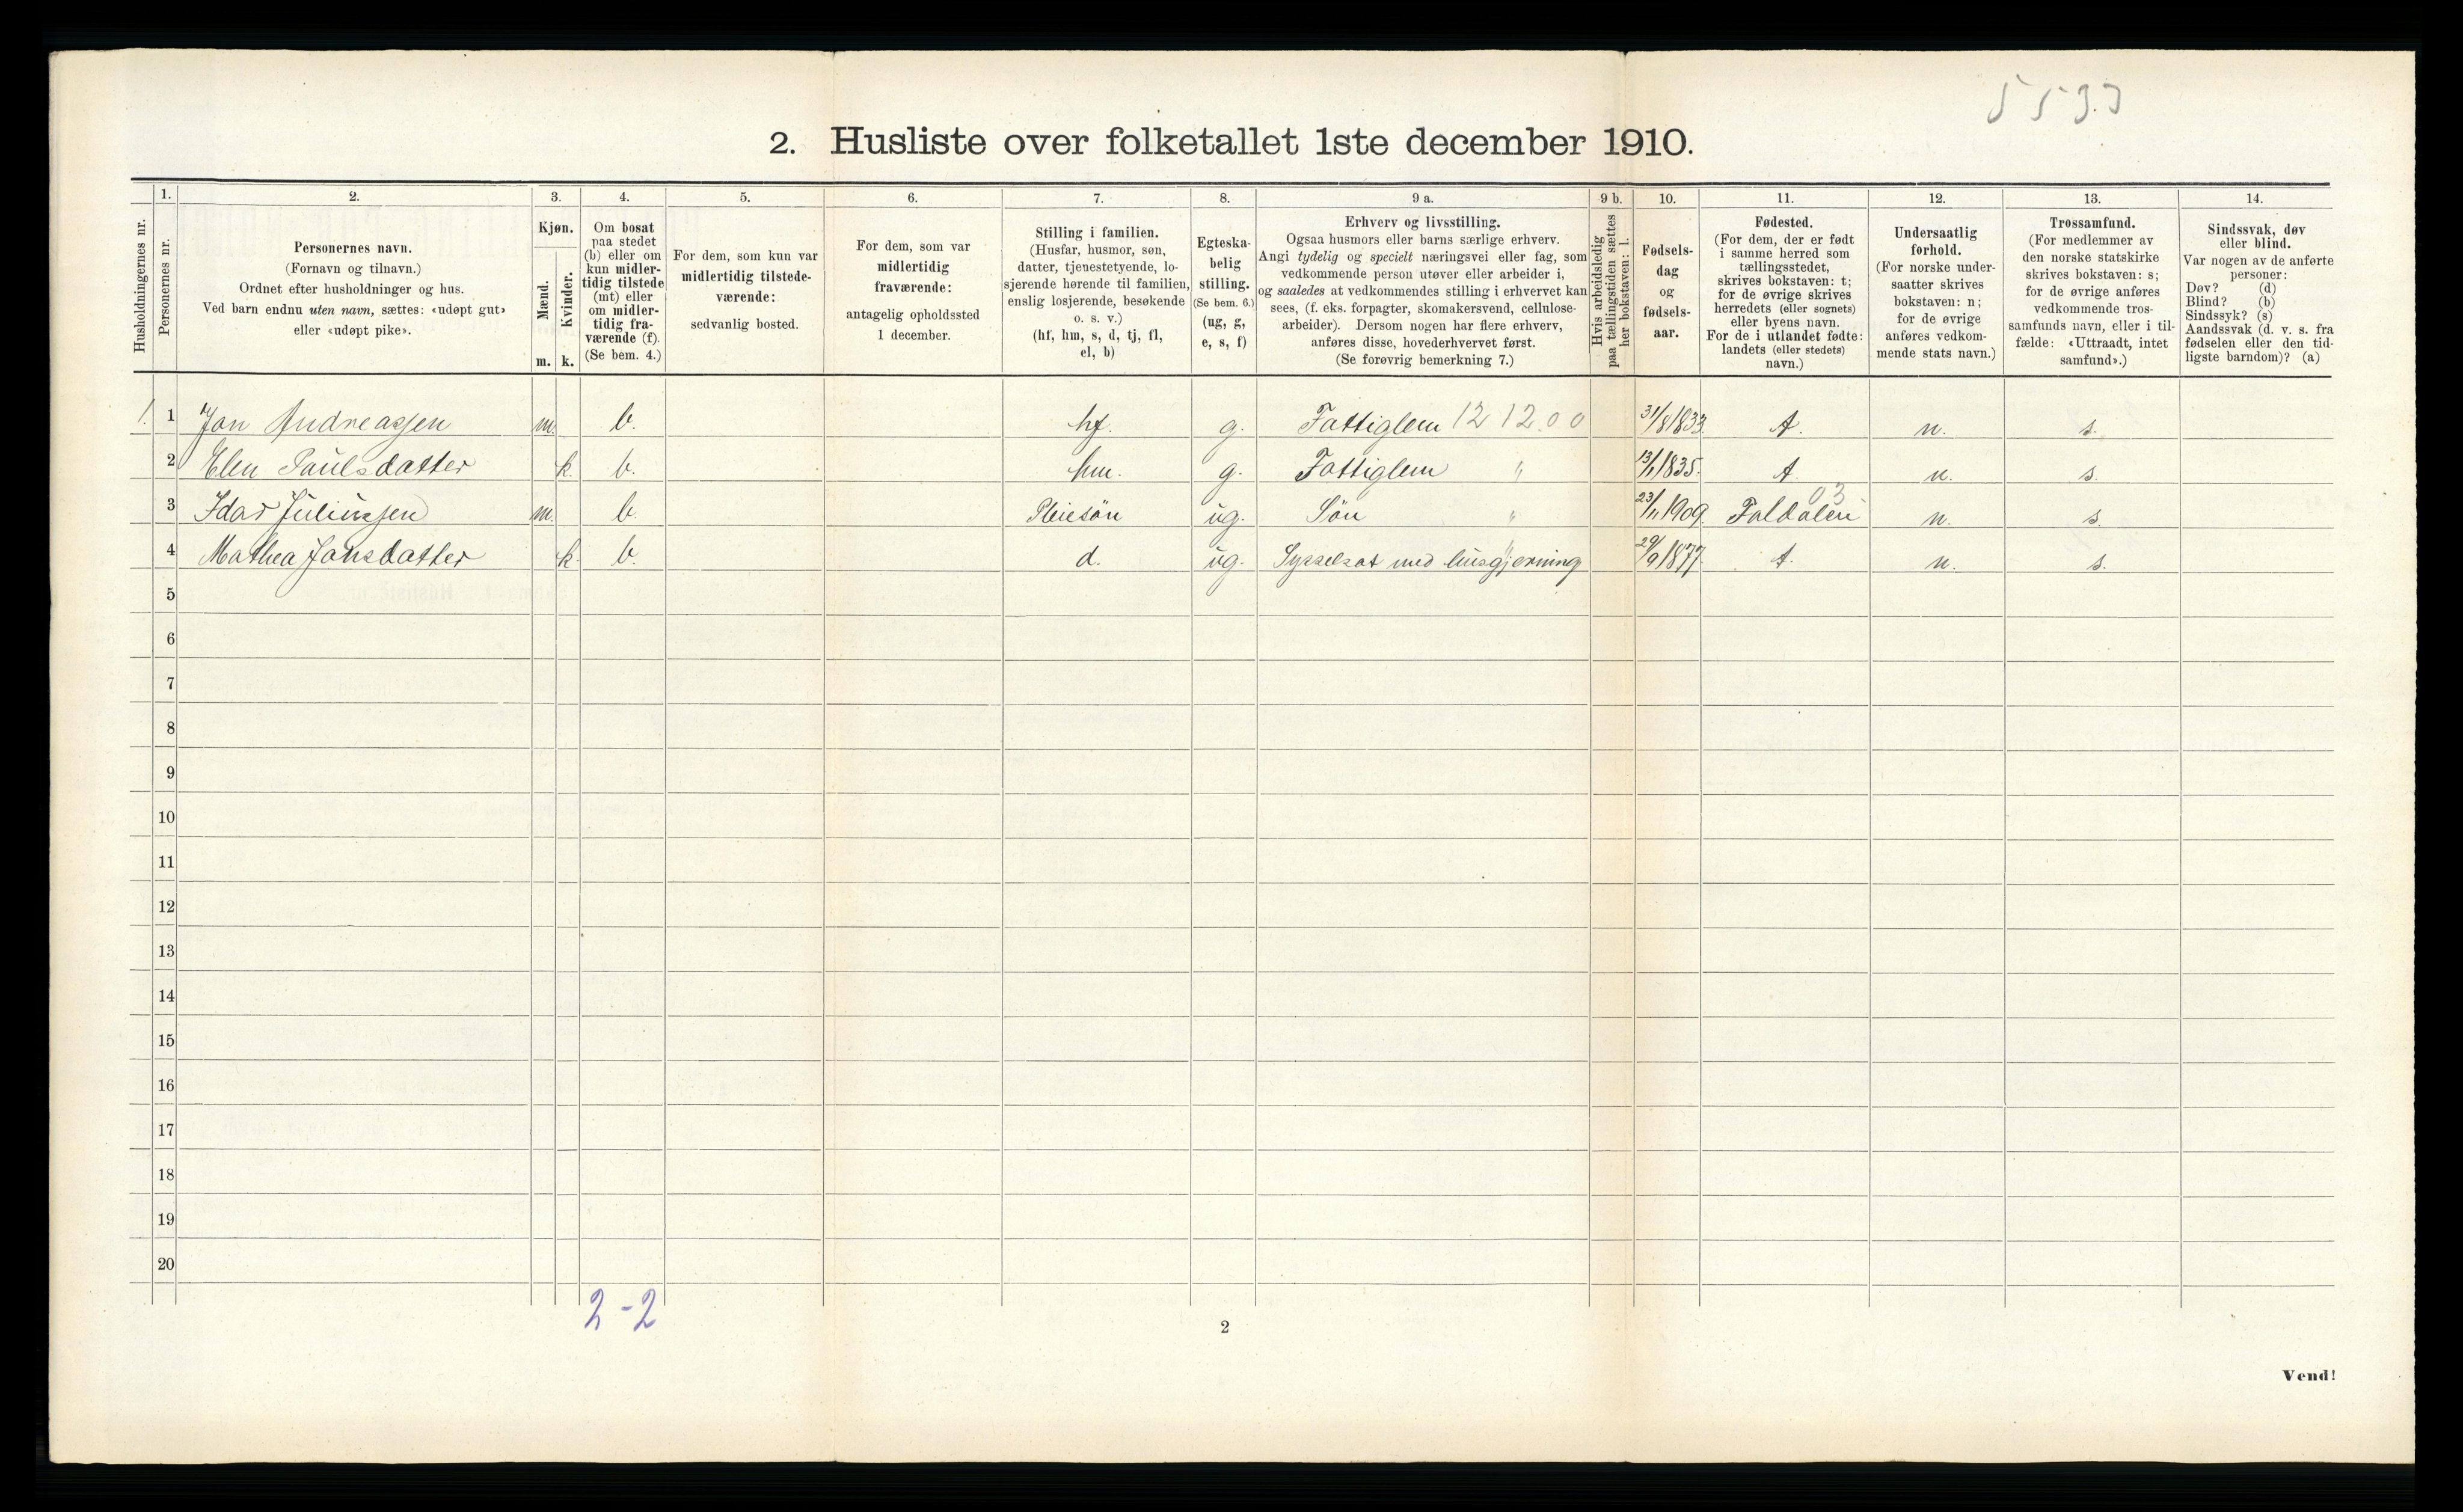 5533
2. Husliste over folketallet 1ste december 1910.
1. 2. 3. 4. 5. 6. 7. 8. 9 a. 9 b. 10. 11. 12. 13. 14.
Husholdningernes nr.
Personernes nr.
Personernes navn.
(Fornavn og tilnavn.)
Ordnet efter husholdninger og hus.
Ved barn endnu uten navn, sættes: «udøpt gut»
eller «udøpt pike».
Kjøn.
Mænd.
Kvinder.
m. k.
Om bosat
paa stedet
(b) eller om
kun midler-
tidig tilstede
(mt) eller
om midler-
tidig fra-
værende (f).
(Se bem. 4.)
For dem, som kun var
midlertidig tilstede-
værende:
sedvanlig bosted.
For dem, som var
midlertidig
fraværende:
antagelig opholdssted
1 december.
Stilling i familien.
(Husfar, husmor, søn,
datter, tjenestetyende, lo-
sjerende hørende til familien,
enslig losjerende, besøkende
o. s. v.)
(hf, hm, s, d, tj, fl,
el, b)
Egteska-
belig
stilling.
(Se bem. 6.)
(ug, g,
e, s, f)
Erhverv og livsstilling.
Ogsaa husmors eller barns særlige erhverv.
Angi tydelig og specielt næringsvei eller fag, som
vedkommende person utøver eller arbeider i,
og saaledes at vedkommendes stilling i erhvervet kan
sees, (f. eks. forpagter, skomakersvend, cellulose-
arbeider). Dersom nogen har flere erhverv,
anføres disse, hovederhvervet først.
(Se forøvrig bemerkning 7.)
Hvis arbeidsledig
paa tællingstiden sættes
her bokstaven: l.
Fødsels-
dag
og
fødsels-
aar.
Fødested.
(For dem, der er født
i samme herred som
tællingsstedet,
skrives bokstaven: t;
for de øvrige skrives
herredets (eller sognets)
eller byens navn.
For de i utlandet fødte:
landets (eller stedets)
navn.)
Undersaatlig
forhold.
(For norske under-
saatter skrives
bokstaven: n;
for de øvrige
anføres vedkom-
mende stats navn.)
Trossamfund.
(For medlemmer av
den norske statskirke
skrives bokstaven: s;
for de øvrige anføres
vedkommende tros-
samfunds navn, eller i til-
fælde: «Uttraadt, intet
samfund».)
Sindssvak, døv
eller blind.
Var nogen av de anførte
personer:
Døv? (d)
Blind? (b)
Sindssyk? (s)
Aandssvak (d. v. s. fra
fødselen eller den tid-
ligste barndom)? (a)
1. 1 Jon Andreassen m. b. hf. g. Fattiglem 12 12.00 31/8 1833. t. n. s.
2 Elen Paulsdatter k. b. hm. g. Fattiglem " 13/1 1835. t. n. s.
03
3 Idar Juliussen m. b. Pleiesön ug. Sön " 23/11 1909. Foldalen n. s.
4 Mathea Jonsdatter k. b. d. ug. Sysselsat med husgjerning " 29/9 1877. t. n. s.
5
6
7
8
9
10
11
12
13
14
15
16
17
18
19
20
2-2
2
Vend!